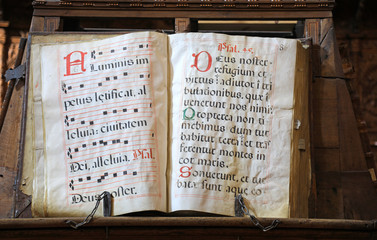 Fluminis im
petus lætificat, al
leluia: ciuitatem
Dei, alleluia. Psal.
Deus noster.
Psal. 45.
Deus noster
refugium et
virtus: adiutor in tri
bulationibus, quæ in
uenerunt nos nimis.
Propterea non ti
mebimus dum tur
babitur terra: et trans
ferentur montes in
cor maris.
Sonuerunt, et tur
batæ sunt aquæ eo